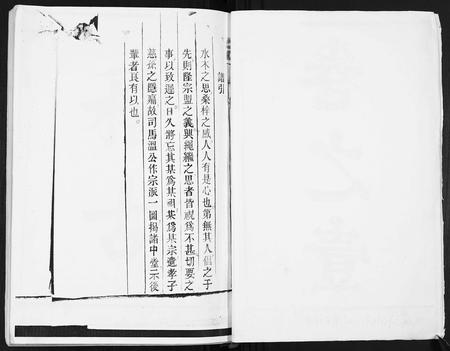 譜引
水木之思桑梓之感人人有是心也第無其人倡之于
先則隆宗盟之義與繩繩之思者皆視為不甚切要之
事以致遲之日久將忘其某為某祖某為某宗遺孝子
慈孫之隱痛故司馬溫公作宗派一圖揭諸中堂示後
輩者良有以也